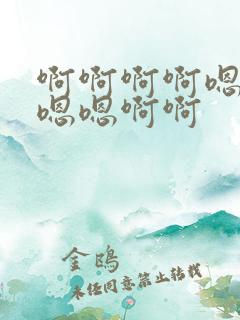 啊啊啊啊嗯
嗯嗯啊啊
金鴎
未经同意禁止转载